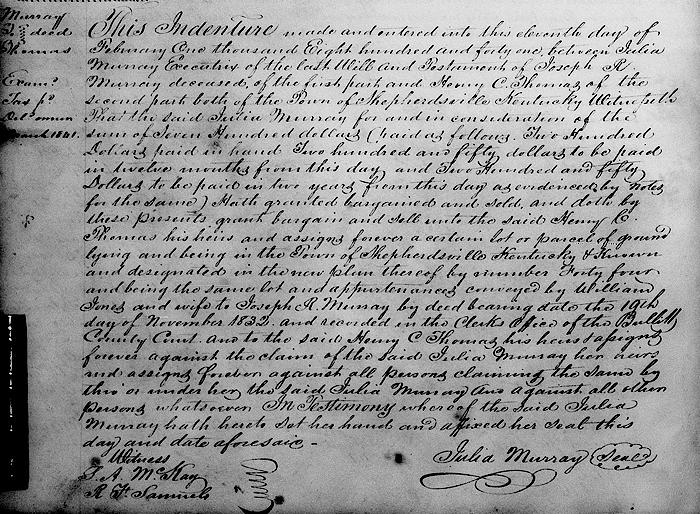 Murray
To } deed
Thomas
Exam.d
March 1841.
This Indenture made and entered into this eleventh day of
February One thousand Eight hundred and forty one, between Julia
Murray Executrix of the last Will and Testament of Joseph R.
Murray deceased, of the first part and Henry C. Thomas of the
second part both of the Town of Shepherdsville Kentucky Witnesseth
That the said Julia Murray for and in consideration of the
sum of Seven Hundred dollars (paid as follows. Two Hundred
Dollars paid in hand Two hundred and fifty dollars to be paid
in twelve months from this day and Two Hundred and fifty
Dollars to be paid in two years from this day as evidenced by notes
for the same) Hath granted bargained and sold, and doth by
these presents grant bargain and sell unto the said Henry C.
Thomas his heirs and assigns forever a certain lot or parcel of ground
lying and being in the Town of Shepherdsville Kentucky & Known
and designated in the new plan thereof by number Forty four
and being the same lot and appurtenances conveyed by William
Jones and wife to Joseph R. Murray by deed bearing date the 19th
day of November 1832. and recorded in the Clerks Office of the Bullitt
County Court. and to the said Henry C Thomas his heirs & assigns
forever against the claim of the said Julia Murray her heirs
and assigns forever against all persons claiming the same by
this or under her the said Julia Murray and against all other
persons whatsoever In Testimony whereof the said Julia
Murray hath hereto set her hand and affixed her seal this
day and date aforesaid -
Witness
J. A. McKay
R. F. Samuels
Julia Murray Seal